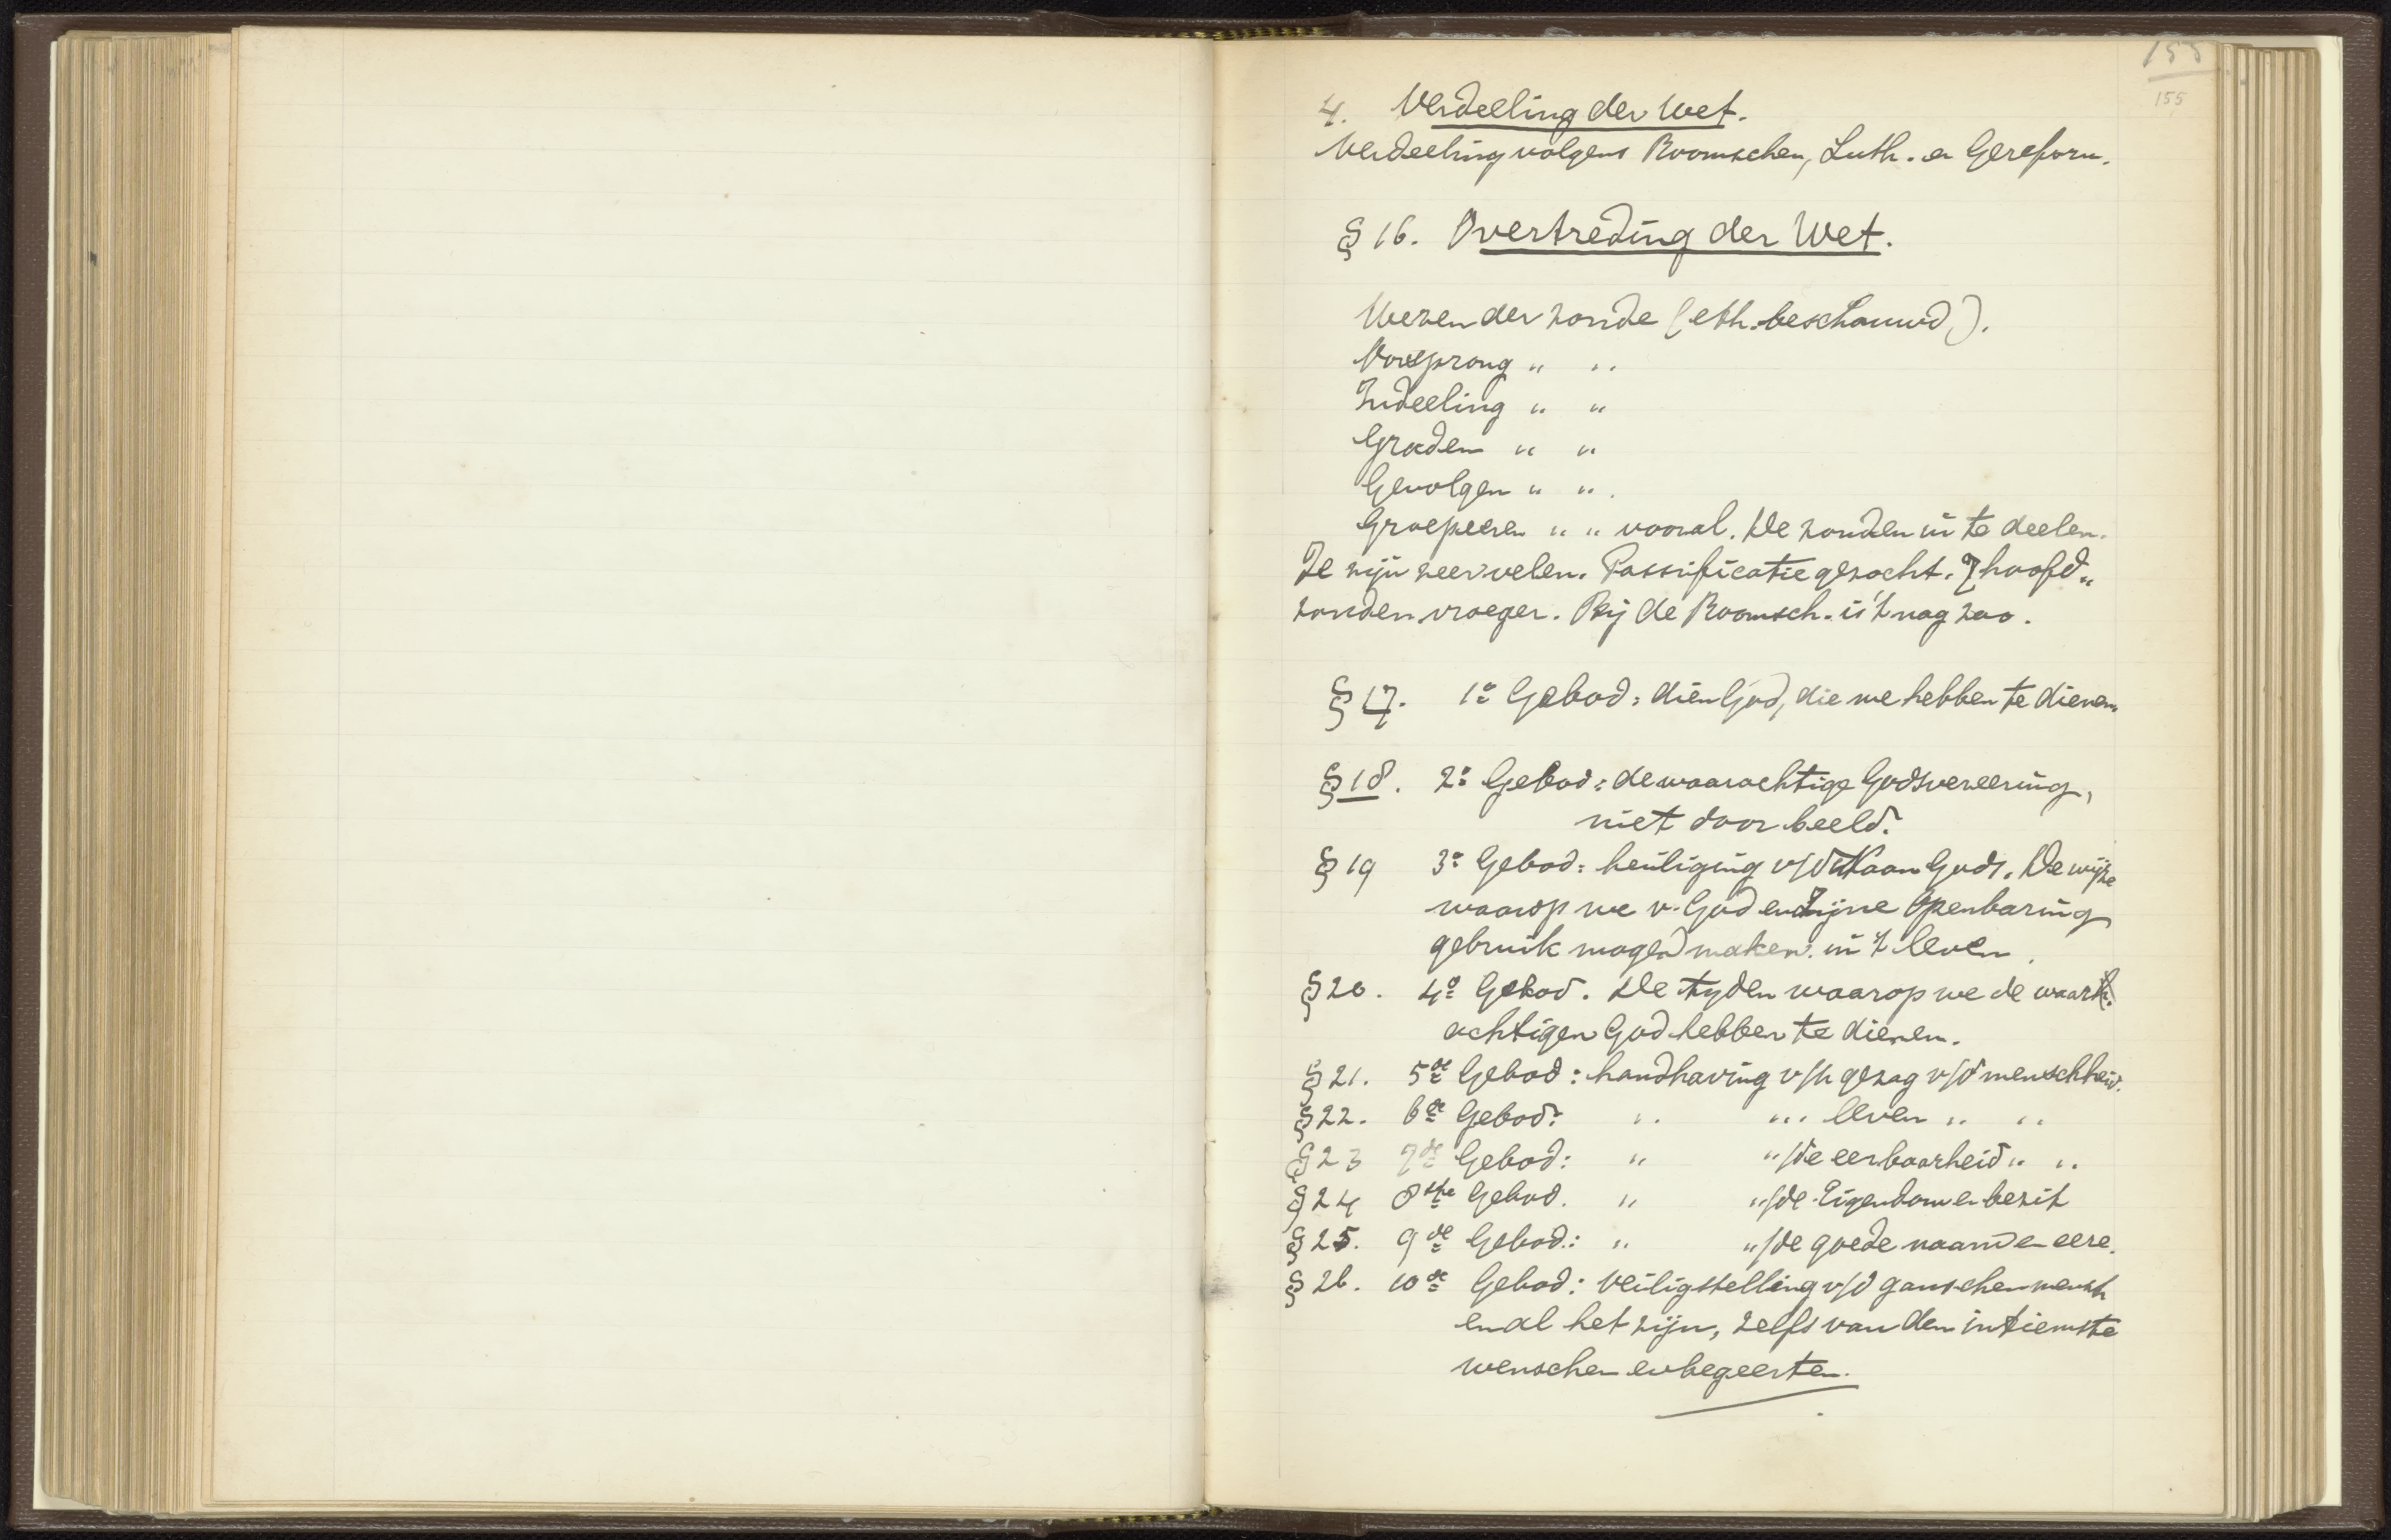 155
155
4. Verdeeling der Wet.
Verdeeling volgens Roomschen, Luth. en Gereform.
§ 16. Overtreding der Wet.
Wezen der zonde (eth. beschouwd).
Oorsprong " "
Indeeling " "
Graden " "
Gevolgen " ".
Groepeeren " " vooral. De zonden in te deelen.
Ze zijn zeer velen. gezocht. 7 hoofd„
zonden vroeger. Bij de Roomsch. is 't nog zoo.
§ 17. 1e Gebod: dien God, die we hebben te dienen.
§ 18. 2e Gebod: de waarachtige Godsvereering,
niet door beeld.
§ 19 3e Gebod: heiliging v/d Naam Gods. De wijze
waarop we v. God en Zijne Openbaring
gebruik mogen maken in 't leven.
§ 20. 4e Gebod. De tyden waarop we de waar
achtigen God hebben te dienen.
§ 21. 5de Gebod: handhaving v/h gezag v/d menschheid.
§ 22. 6de Gebod: " " " leven " "
§ 23 7de Gebod: " "/de eerbaarheid " "
§ 24 8ste Gebod. " "/de Eigendom en bezit
§ 25. 9de Gebod.: " "/de goede naam en eere.
§ 26. 10de Gebod: Veiligstelling v/d ganschen mensch
en al het zijn, zelfs van den intiemste
wenschen en begeerten.